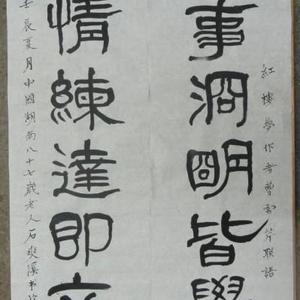 紅樓夢作者曹雪芹聯語
事洞明皆學
情練達即文
辰夏月中國湖南八十七歲老人石爽溪书